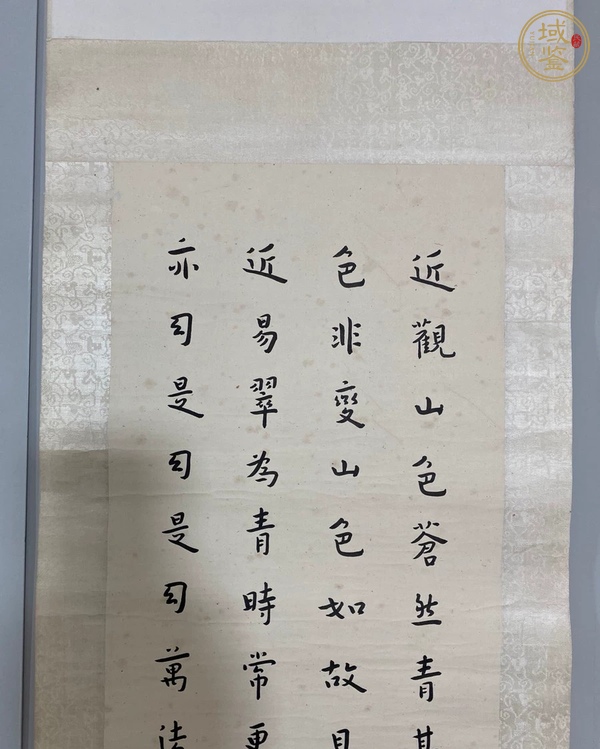 近觀山色蒼然青其
色非變山色如故目
近易翠為青時常更
亦幻是幻是幻萬法
域鑒